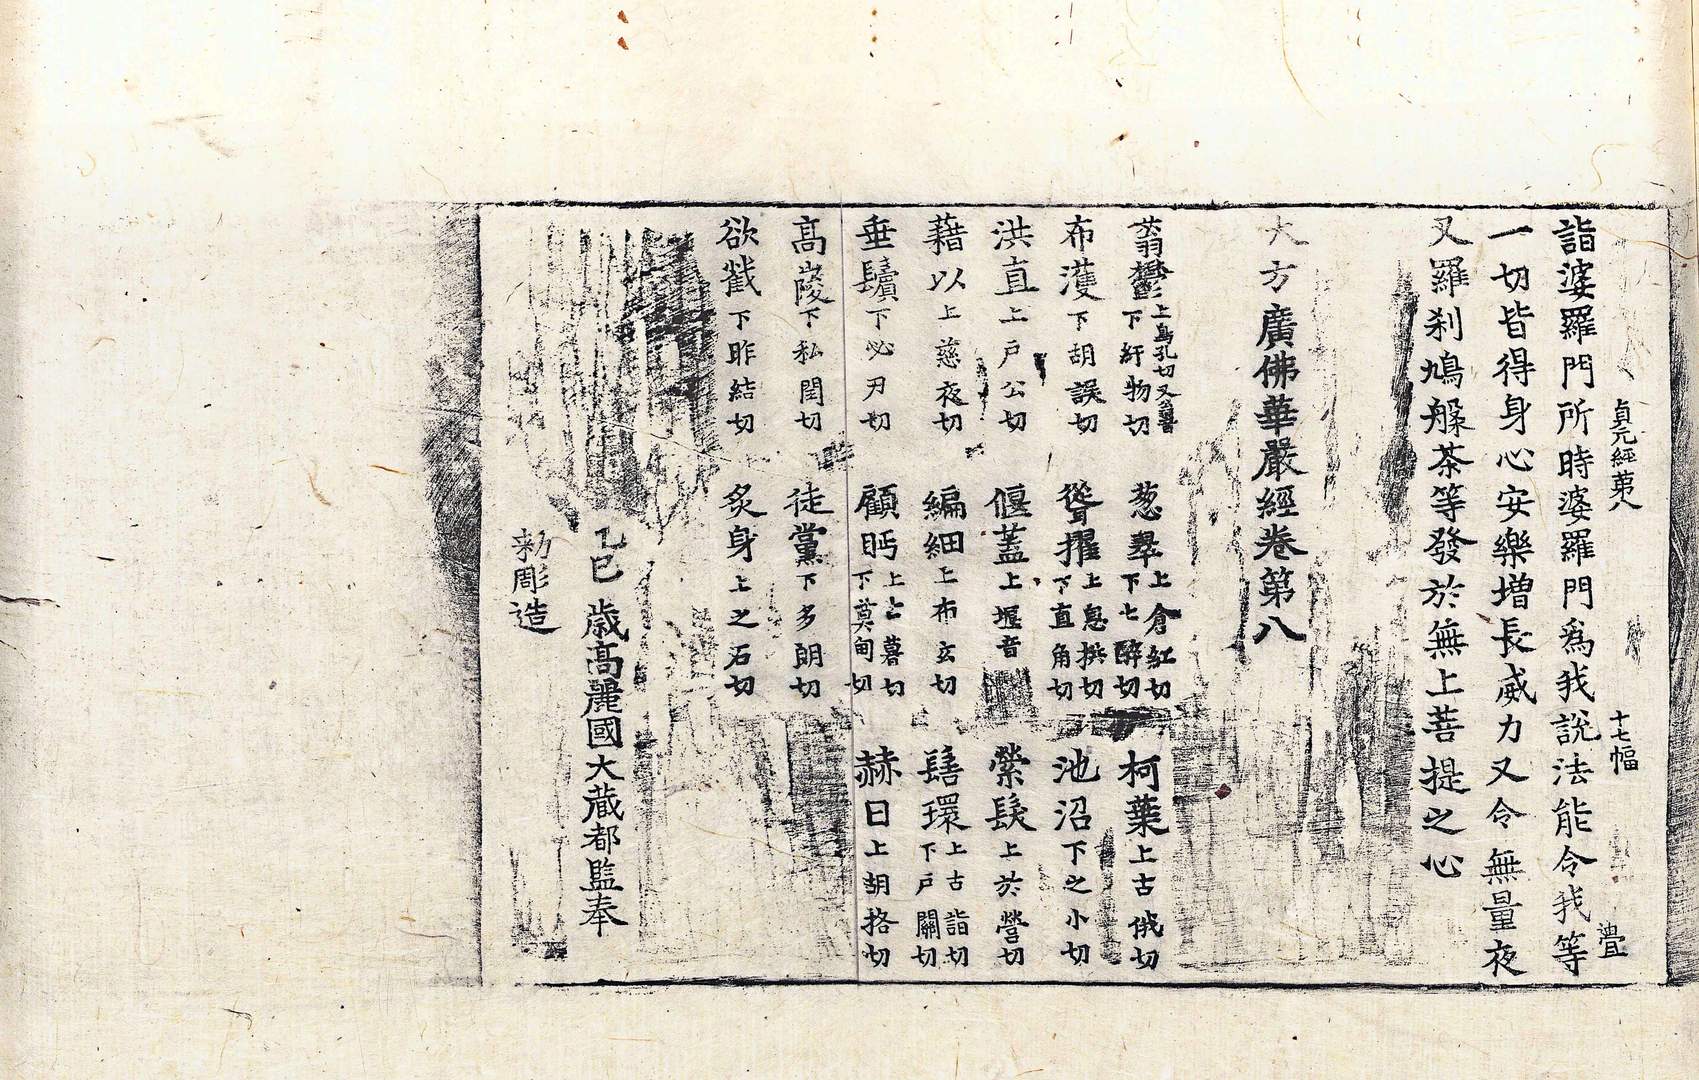 貞元經第八　十七幅　疊
詣婆羅門所時婆羅門爲我說法能令我等
一切皆得身心安樂增長威力又令無量夜
又羅刹鳩槃茶等發於無上菩提之心
大方廣佛華嚴經卷第八
蓊鬱上烏孔切又翁音下紆物切　葱翠上倉紅切下七醉切　柯葉上古俄切
布濩下胡誤切　聳擢上息拱切下直角切　池沼下之小切
洪直上戶公切　偃蓋上堰音　縈髮上於營切
藉以上慈夜切　編細上布玄切　髻環上古詣切下戶關切
垂鬢下必刃切　顧眄上古暮切下莫甸切　赫日上胡挌切
高峻下私閏切　徒黨下多朗切
欲截下昨結切　炙身上之石切
乙巳歲高麗國大藏都監奉
勅彫造